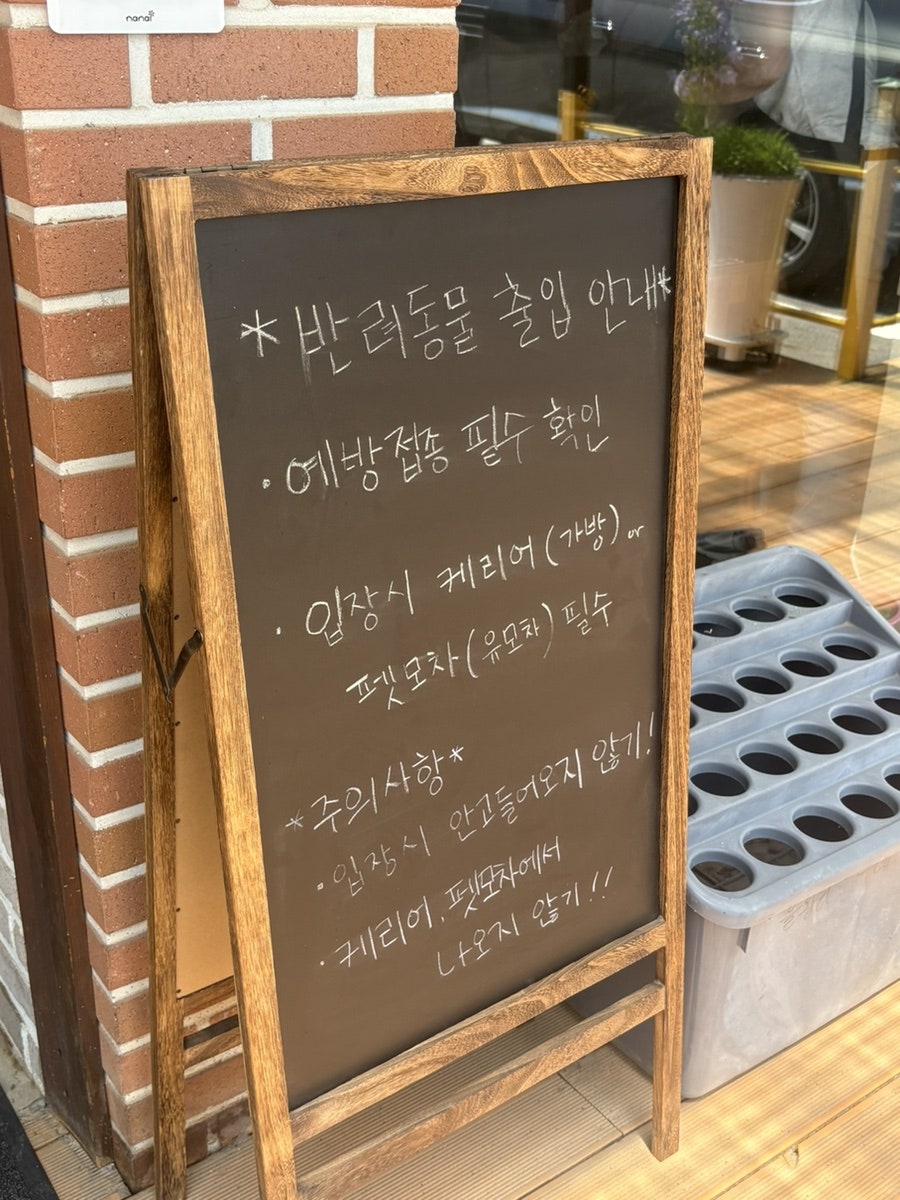 nanal
*반려동물 출입 안내*
· 예방접종 필수 확인
· 입장시 케리어(가방) or
펫모차(유모차) 필수
*주의사항*
· 입장시 안고들어오지 않기!
· 케리어, 펫모차에서
나오지 않기!!